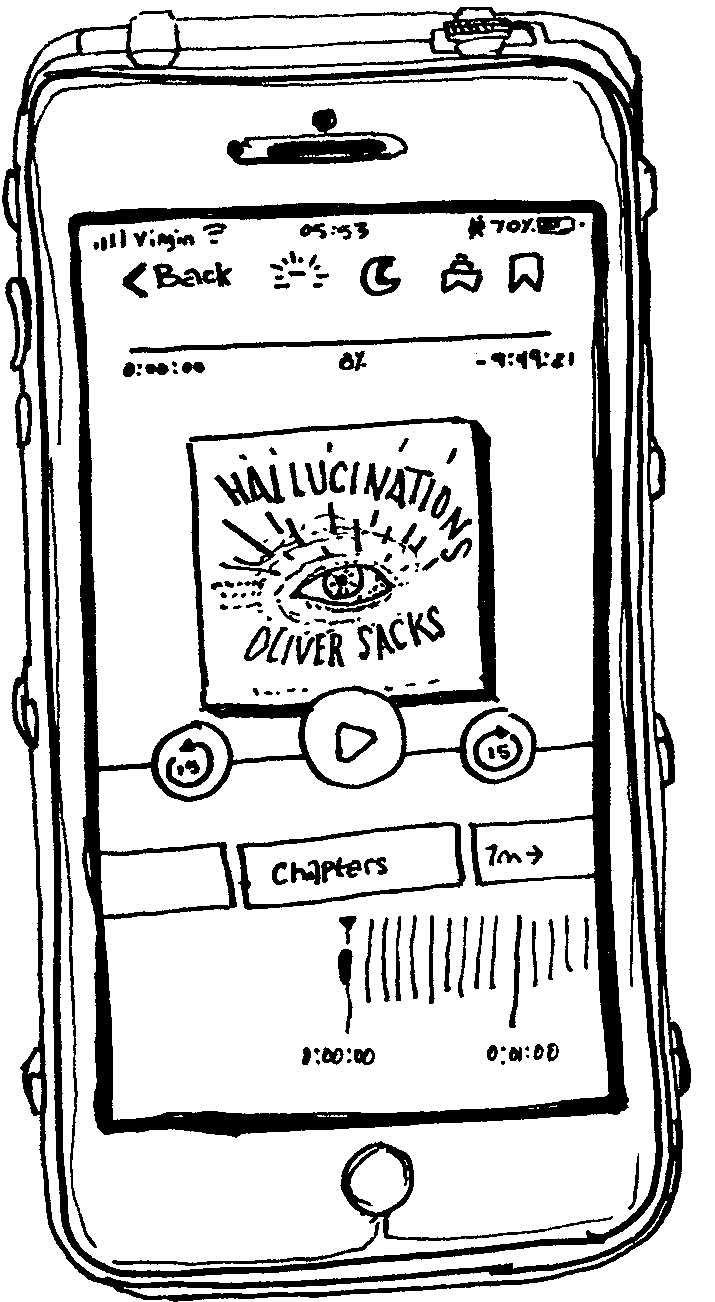 Virgin 05:53 70%
Back
0:00:00 0% -9:49:21
HALLUCINATIONS
OLIVER SACKS
15 15
Chapters 7m→
0:00:00 0:01:00